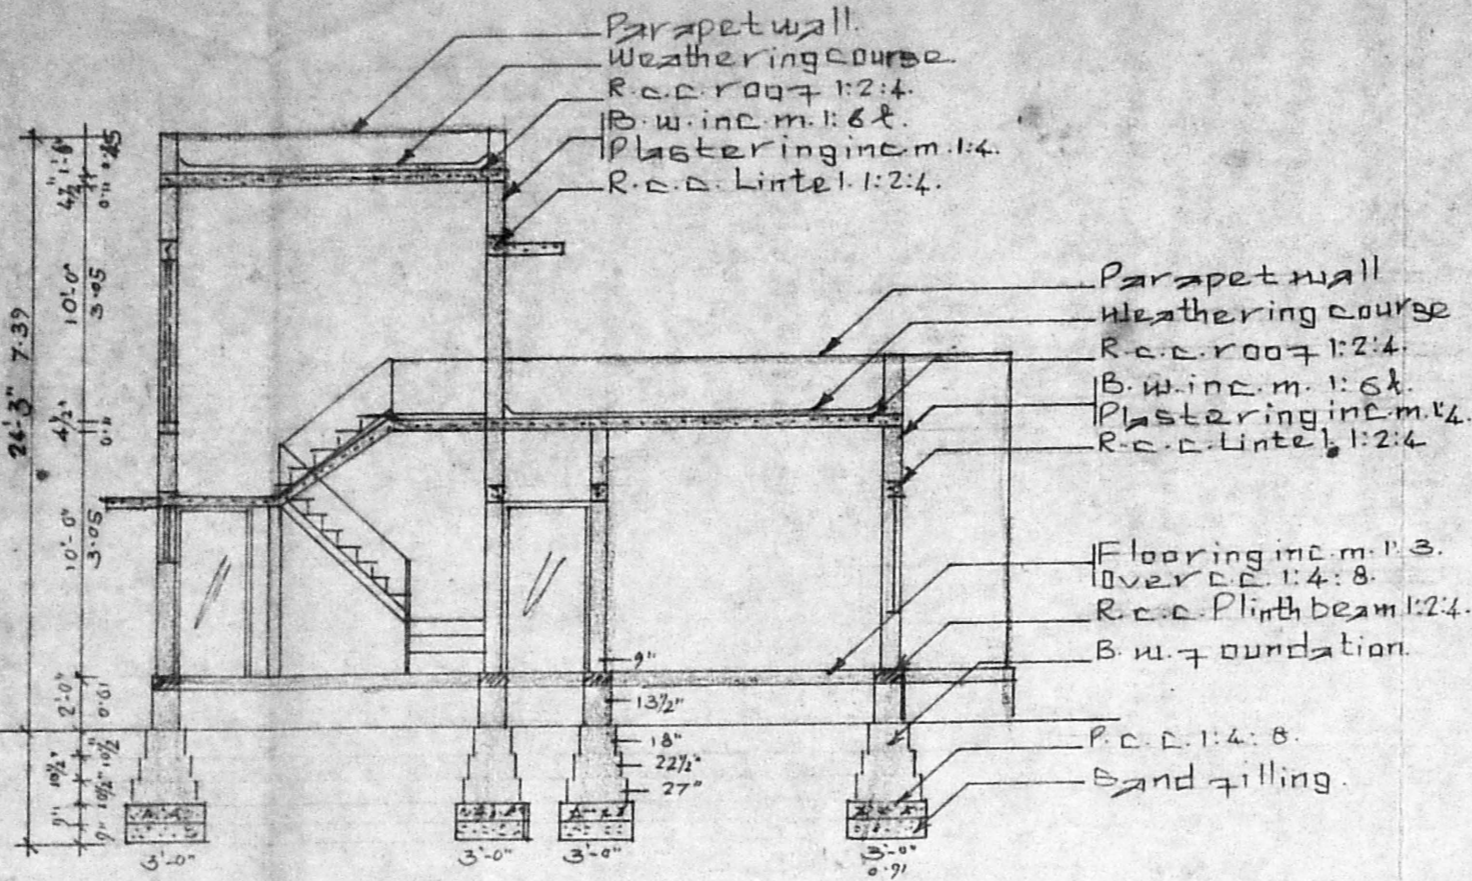 Parapet wall.
Weathering course.
R.c.c. roof 1:2:4.
B.w. in c.m. 1:6 &.
Plastering in c.m. 1:4.
R.c.c. Lintel. 1:2:4.
Parapet wall
Weathering course
R.c.c. roof 1:2:4.
B.w. in c.m. 1:6 &.
Plastering in c.m. 1:4.
R.c.c. Lintel. 1:2:4
Flooring in c.m. 1:3.
over c.c. 1:4:8.
R.c.c. Plinth beam 1:2:4.
B.w. foundation.
P.c.c. 1:4:8.
Sand filling.
24'-3" 7.39
4½"
0.11
10'-0"
3.05
4½"
0.11
10'-0"
3.05
2'-0"
0.61
10½"
10½"
10½"
9"
9"
9"
13½"
18"
22½"
27"
3'-0"
3'-0"
3'-0"
3'-0"
0.91